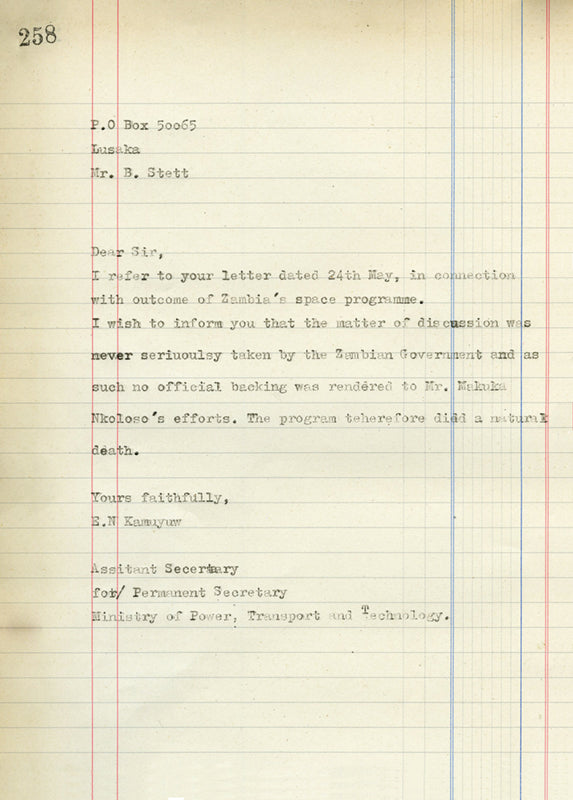 258
P.O Box 50065
Lusaka
Mr. B. Stett
Dear Sir,
I refer to your letter dated 24th May, in connection
with outcome of Zambia's space programme.
I wish to inform you that the matter of discussion was
never seriuoulsy taken by the Zambian Government and as
such no official backing was rendered to Mr. Makuka
Nkoloso's efforts. The program teherefore died a natural
death.
Yours faithfully,
E.N Kamuyuw
Assitant Secertary
for/ Permanent Secretary
Ministry of Power, Transport and Technology.